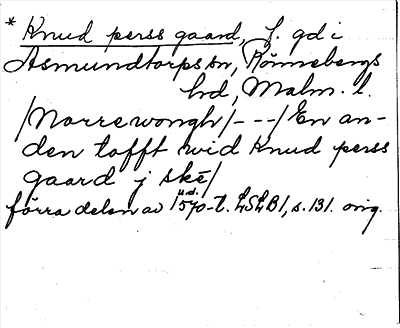 * Knud perss gaard, f. gd i
Asmundtorps sn, Rönnebergs
hd, Malm. l.
/Norrewongh/---/En an-
den tofft wid Knud perss
gaard j skē/
u.å.
förra delen av 1570-t. LSLB1, s. 131. orig.